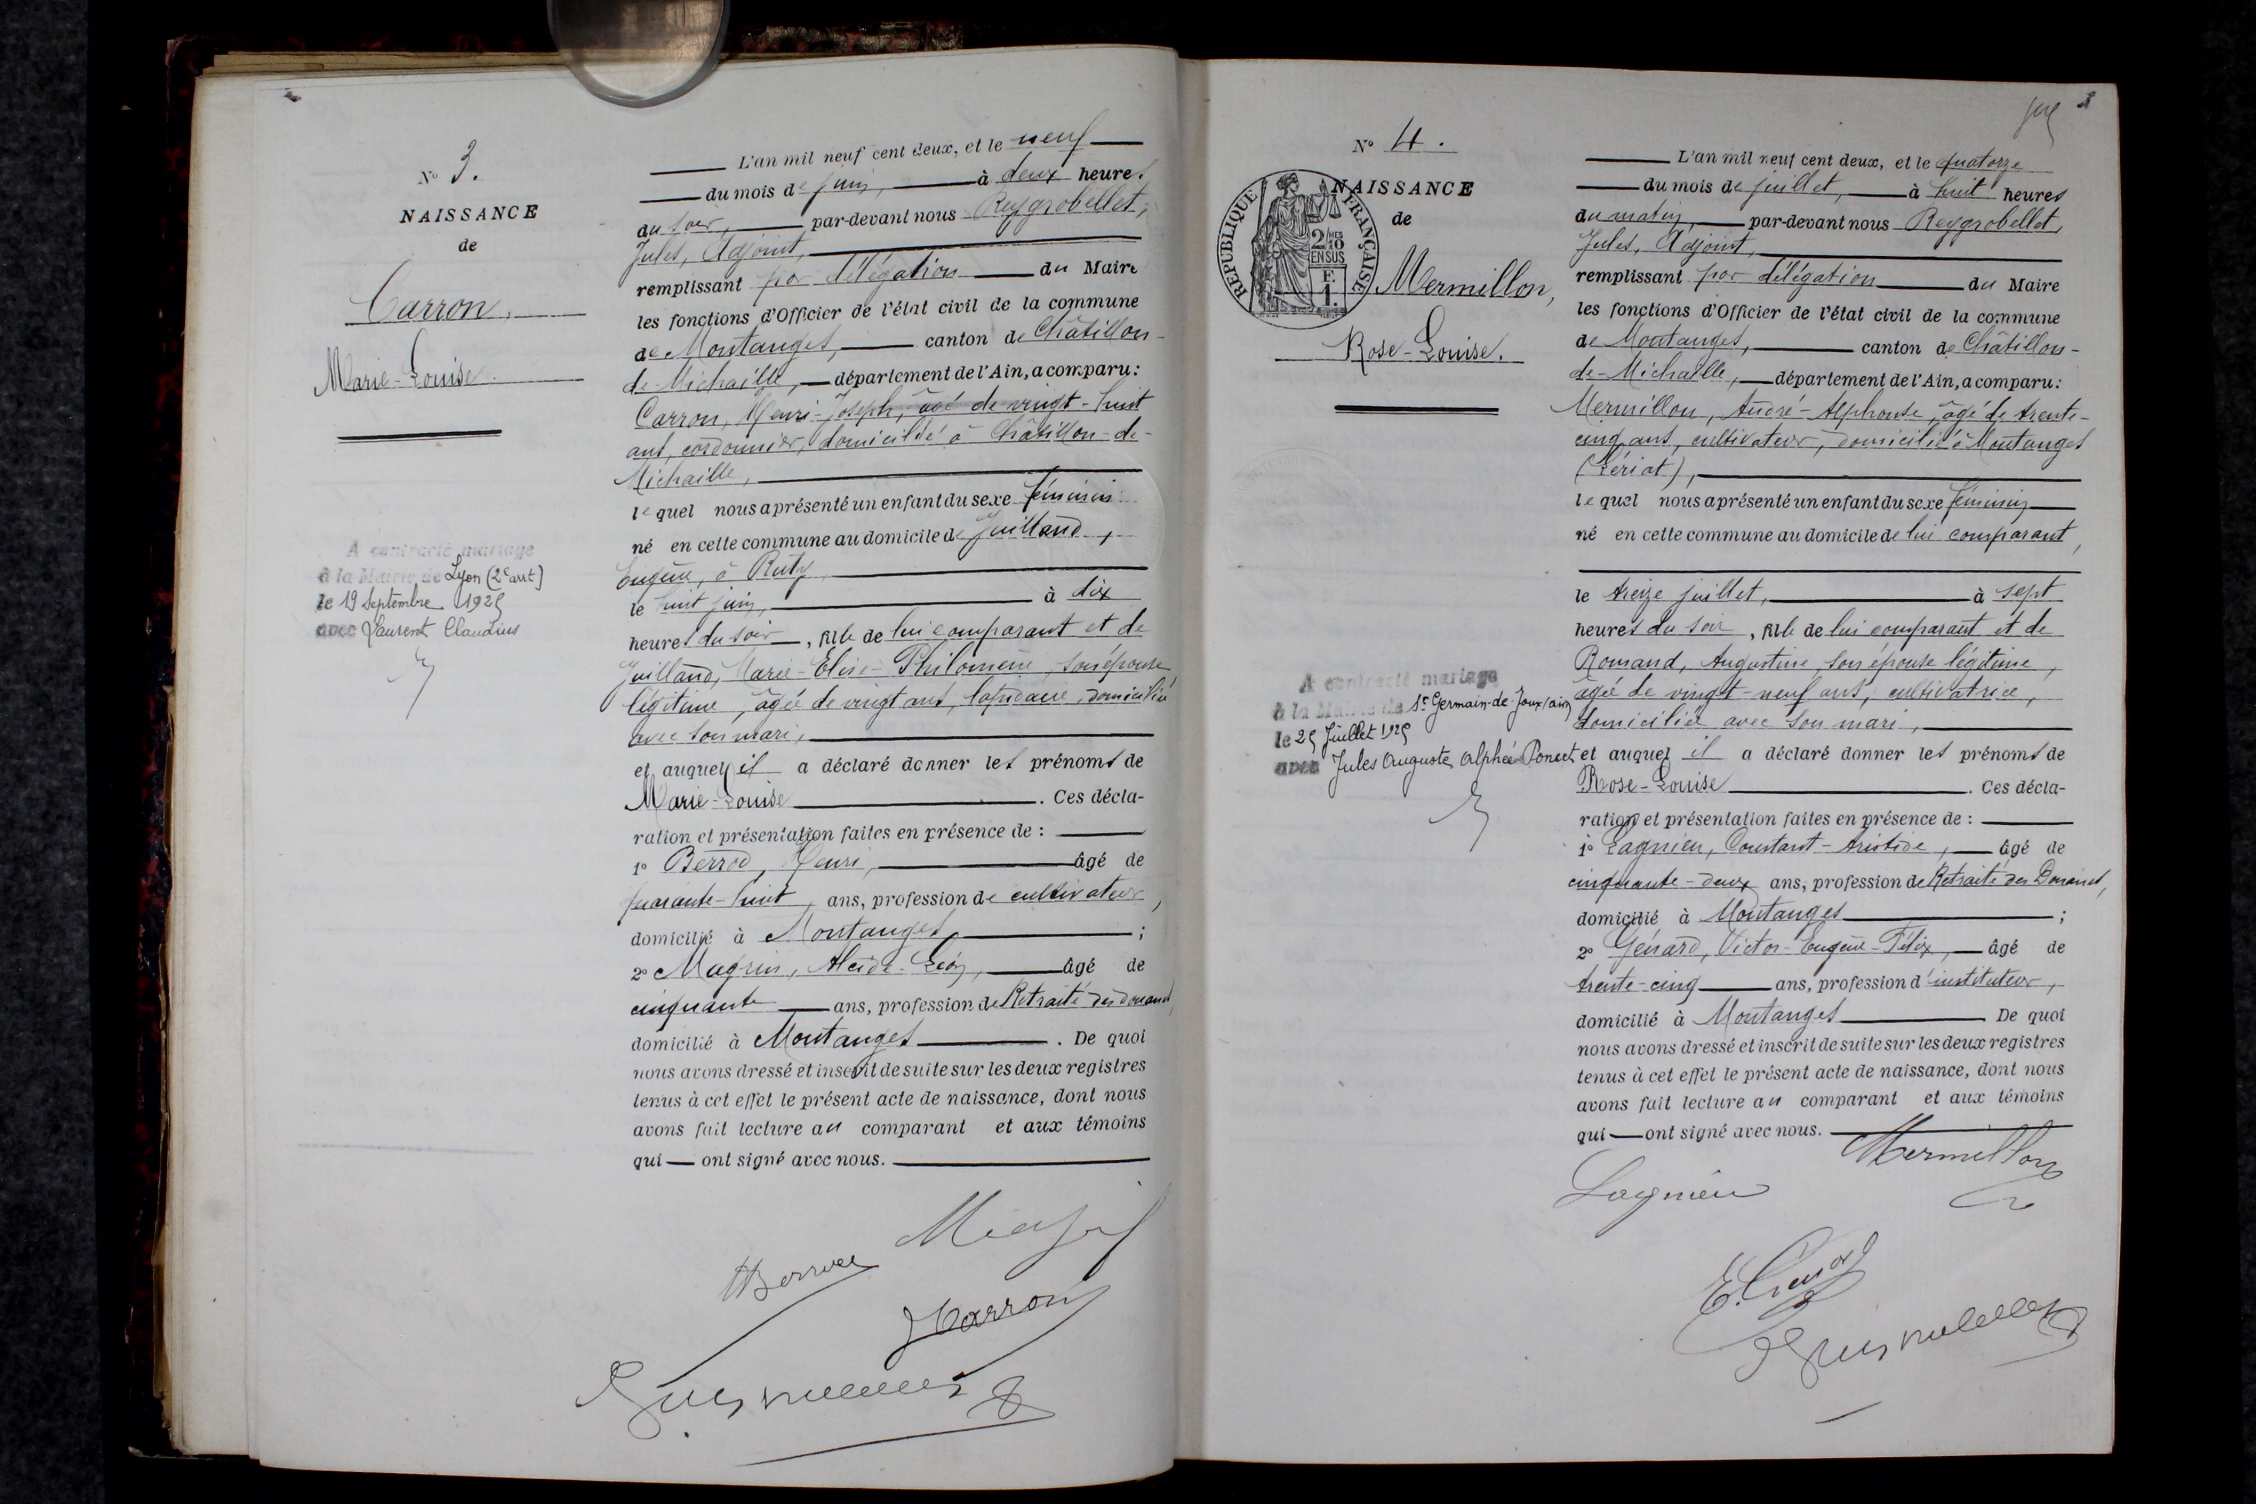 N° 3.
NAISSANCE
de
Carron,
Marie-Louise.
A contracté mariage
à la Mairie de Lyon (2e arrt)
le 19 Septembre 1925
avec Laurent Claudius
L'an mil neuf cent deux, et le neuf
du mois de juin, à deux heures
du soir, par-devant nous Reygrobellet,
Jules, Adjoint,
remplissant par délégation du Maire
les fonctions d'Officier de l'état civil de la commune
de Montanges, canton de Châtillon-
de-Michaille, département de l'Ain, a comparu:
Carron, Henri-Joseph, âgé de vingt-huit
ans, cordonnier, domicilié à Châtillon-de-
Michaille,
lequel nous a présenté un enfant du sexe féminin
né en cette commune au domicile de Juilland,
Eugène, à Ruty,
le huit juin, à dix
heures du soir, fille de lui comparant et de
Juilland, Marie-Elise-Philomène, son épouse
légitime, âgée de vingt ans, lapidaire, domiciliée
avec son mari,
et auquel il a déclaré donner les prénoms de
Marie-Louise. Ces décla-
ration et présentation faites en présence de :
1° Berrod, Henri, âgé de
quarante-huit, ans, profession de cultivateur,
domicilié à Montanges, ;
2° Magnin, Alcide-Léon, âgé de
cinquante ans, profession de Retraité des douanes,
domicilié à Montanges. De quoi
nous avons dressé et inscrit de suite sur les deux registres
tenus à cet effet le présent acte de naissance, dont nous
avons fait lecture au comparant et aux témoins
qui ont signé avec nous.
HBerrod
HCarron
N° 4.
NAISSANCE
de
RÉPUBLIQUE FRANÇAISE
2/10 MES
EN SUS
F.
1.
Mermillon,
Rose-Louise.
A contracté mariage
à la Mairie de St Germain-de-Joux (ain)
le 25 Juillet 1925
avec Jules Auguste Alphée Poncet
L'an mil neuf cent deux, et le quatorze
du mois de juillet, à huit heures
du matin, par-devant nous Reygrobellet,
Jules, Adjoint,
remplissant par délégation du Maire
les fonctions d'Officier de l'état civil de la commune
de Montanges, canton de Châtillon-
de-Michaille, département de l'Ain, a comparu:
Mermillon, André-Alphonse, âgé de trente-
cinq ans, cultivateur, domicilié à Montanges
(Lériat),
lequel nous a présenté un enfant du sexe féminin
né en cette commune au domicile de lui comparant,
le treize juillet, à sept
heures du soir, fille de lui comparant et de
Romand, Augustine, son épouse légitime,
âgée de vingt-neuf ans, cultivatrice,
domiciliée avec son mari,
et auquel il a déclaré donner les prénoms de
Rose-Louise. Ces décla-
ration et présentation faites en présence de :
1° Lagnieu, Constant-Aristide, âgé de
cinquante-deux ans, profession de Retraité des Douanes,
domicilié à Montanges ;
2° Génard, Victor-Eugène-Félix, âgé de
trente-cinq ans, profession d'instituteur,
domicilié à Montanges. De quoi
nous avons dressé et inscrit de suite sur les deux registres
tenus à cet effet le présent acte de naissance, dont nous
avons fait lecture au comparant et aux témoins
qui ont signé avec nous.
Mermillon
Lagnieu